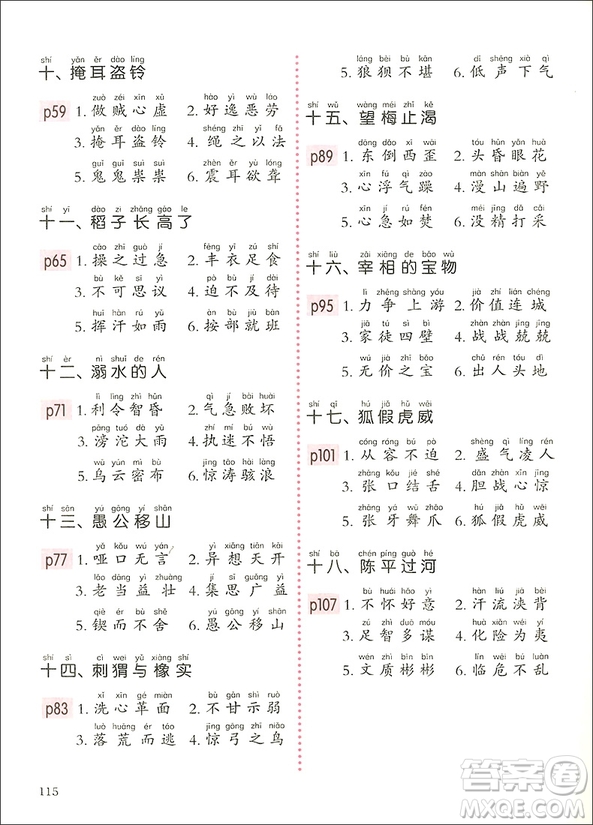 shí yǎn ěr dào líng
十、掩耳盗铃
zuò zéi xīn xū hào yì wù láo
p59 1. 做贼心虚 2. 好逸恶劳
yǎn ěr dào líng shéng zhī yǐ fǎ
3. 掩耳盗铃 4. 绳之以法
guǐ guǐ suì suì zhèn ěr yù lóng
5. 鬼鬼祟祟 6. 震耳欲聋
shí yī dào zi zhǎng gāo le
十一、稻子长高了
cāo zhī guò jí fēng yī zú shí
p65 1. 操之过急 2. 丰衣足食
bù kě sī yì pò bù jí dài
3. 不可思议 4. 迫不及待
huī hàn rú yǔ àn bù jiù bān
5. 挥汗如雨 6. 按部就班
shí èr nì shuǐ de rén
十二、溺水的人
lì lìng zhì hūn qì jí bài huài
p71 1. 利令智昏 2. 气急败坏
pāng tuó dà yǔ zhí mí bù wù
3. 滂沱大雨 4. 执迷不悟
wū yún mì bù jīng tāo hài làng
5. 乌云密布 6. 惊涛骇浪
shí sān yú gōng yí shān
十三、愚公移山
yǎ kǒu wú yán yì xiǎng tiān kāi
p77 1. 哑口无言 2. 异想天开
lǎo dāng yì zhuàng jí sī guǎng yì
3. 老当益壮 4. 集思广益
qiè ér bù shě yú gōng yí shān
5. 锲而不舍 6. 愚公移山
shí sì cì wei yǔ xiàng shí
十四、刺猬与橡实
xǐ xīn gé miàn bù gān shì ruò
p83 1. 洗心革面 2. 不甘示弱
luò huāng ér táo jīng gōng zhī niǎo
3. 落荒而逃 4. 惊弓之鸟
láng bèi bù kān dī shēng xià qì
5. 狼狈不堪 6. 低声下气
shí wǔ wàng méi zhǐ kě
十五、望梅止渴
dōng dǎo xī wāi tóu hūn yǎn huā
p89 1. 东倒西歪 2. 头昏眼花
xīn fú qì zào màn shān biàn yě
3. 心浮气躁 4. 漫山遍野
xīn jí rú fén méi jīng dǎ cǎi
5. 心急如焚 6. 没精打采
shí liù zǎi xiàng de bǎo wù
十六、宰相的宝物
lì zhēng shàng yóu jià zhí lián chéng
p95 1. 力争上游 2. 价值连城
jiā tú sì bì zhàn zhàn jīng jīng
3. 家徒四壁 4. 战战兢兢
wú jià zhī bǎo chū rén tóu dì
5. 无价之宝 6. 出人头地
shí qī hú jiǎ hǔ wēi
十七、狐假虎威
cóng róng bú pò shèng qì líng rén
p101 1. 从容不迫 2. 盛气凌人
zhāng kǒu jié shé dǎn zhàn xīn jīng
3. 张口结舌 4. 胆战心惊
zhāng yá wǔ zhǎo hú jiǎ hǔ wēi
5. 张牙舞爪 6. 狐假虎威
shí bā chén píng guò hé
十八、陈平过河
bù huái hǎo yì hàn liú jiā bèi
p107 1. 不怀好意 2. 汗流浃背
zú zhì duō móu huà xiǎn wéi yí
3. 足智多谋 4. 化险为夷
wén zhì bīn bīn lín wēi bú luàn
5. 文质彬彬 6. 临危不乱
115
答案圈
MXQE.COM